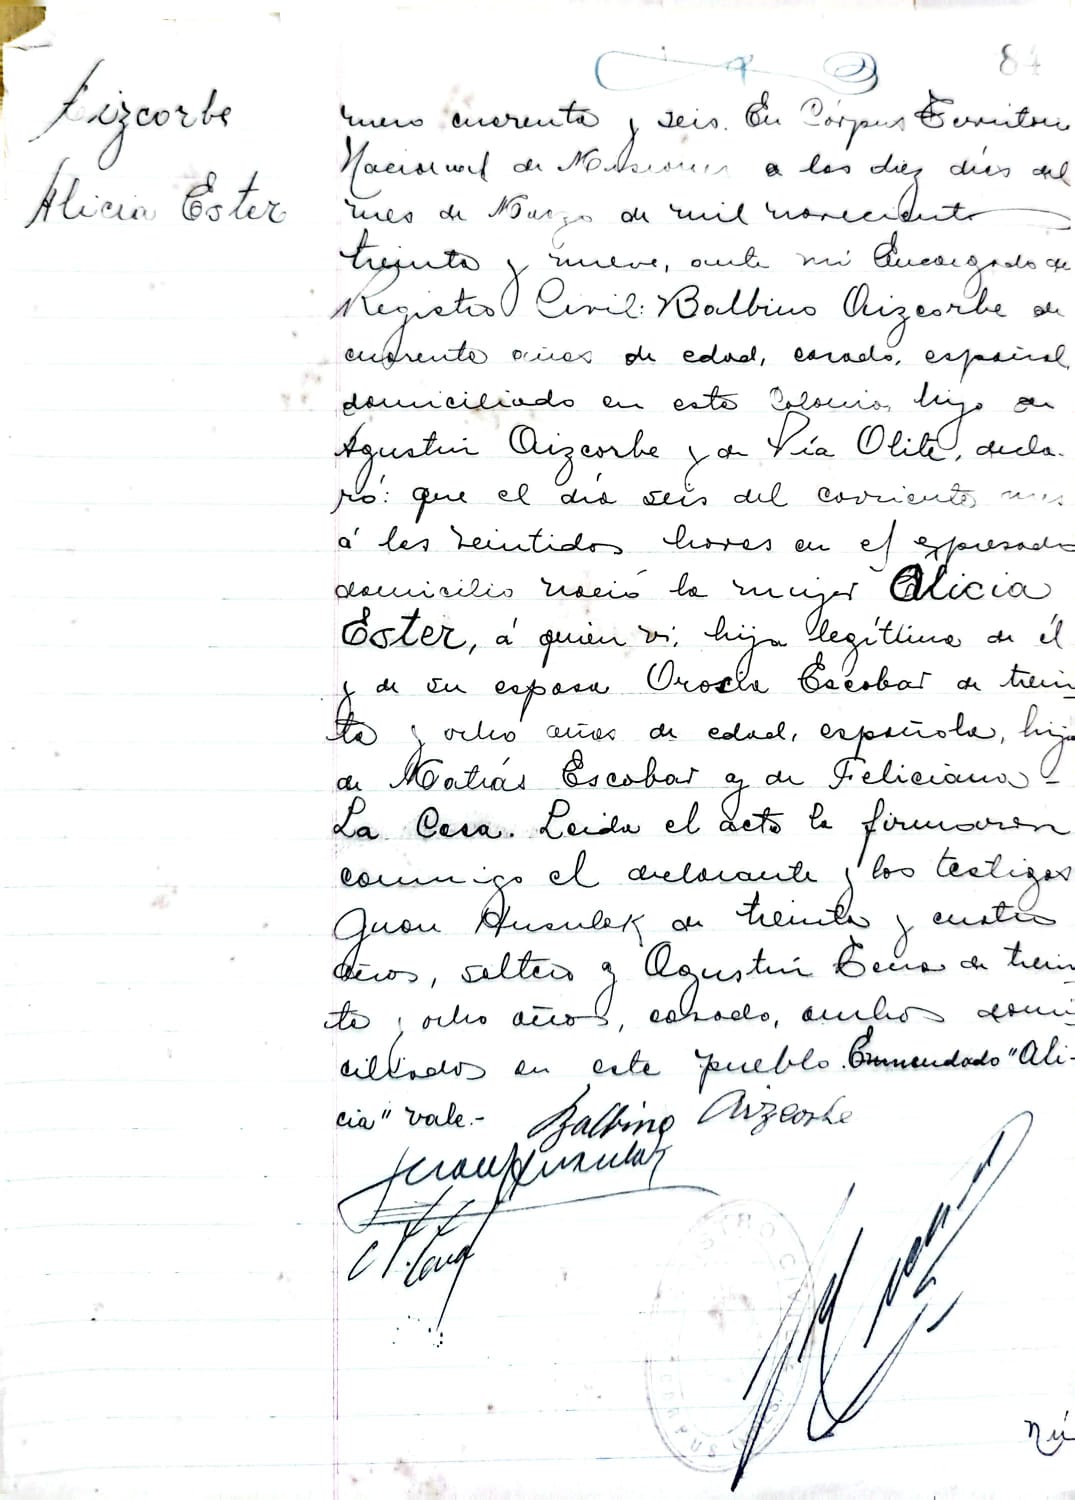 84
Aizcorbe
Alicia Ester
mero cuarenta y seis. En Córpus Territorio
Nacional de Misiones a los diez días del
mes de Marzo de mil novecientos
treinta y nueve, ante mi Encargado de
Registro Civil: Balbino Aizcorbe de
cuarenta años de edad, casado, español,
domiciliado en esta Colonia, hijo de
Agustin Aizcorbe y de Pía Olite, decla-
ró: que el día seis del corriente mes
á las veintidos horas en el expresado
domicilio nació la mujer Alicia
Ester, á quien vi, hija legítima de él
y de su esposa Orosia Escobar de trein
ta y ocho años de edad, española, hija
de Matías Escobar y de Feliciana -
La Casa. Leida el acta la firmaron
conmigo el declarante y los testigos
Juan Husulak de treinta y cuatro
años, soltero y Agustín de trein
ta y ocho años, casado, ambos domi
ciliados en este pueblo. Enmendado "Ali-
cia" vale.-
Balbino Aizcorbe
REGISTRO CIVIL
Nú